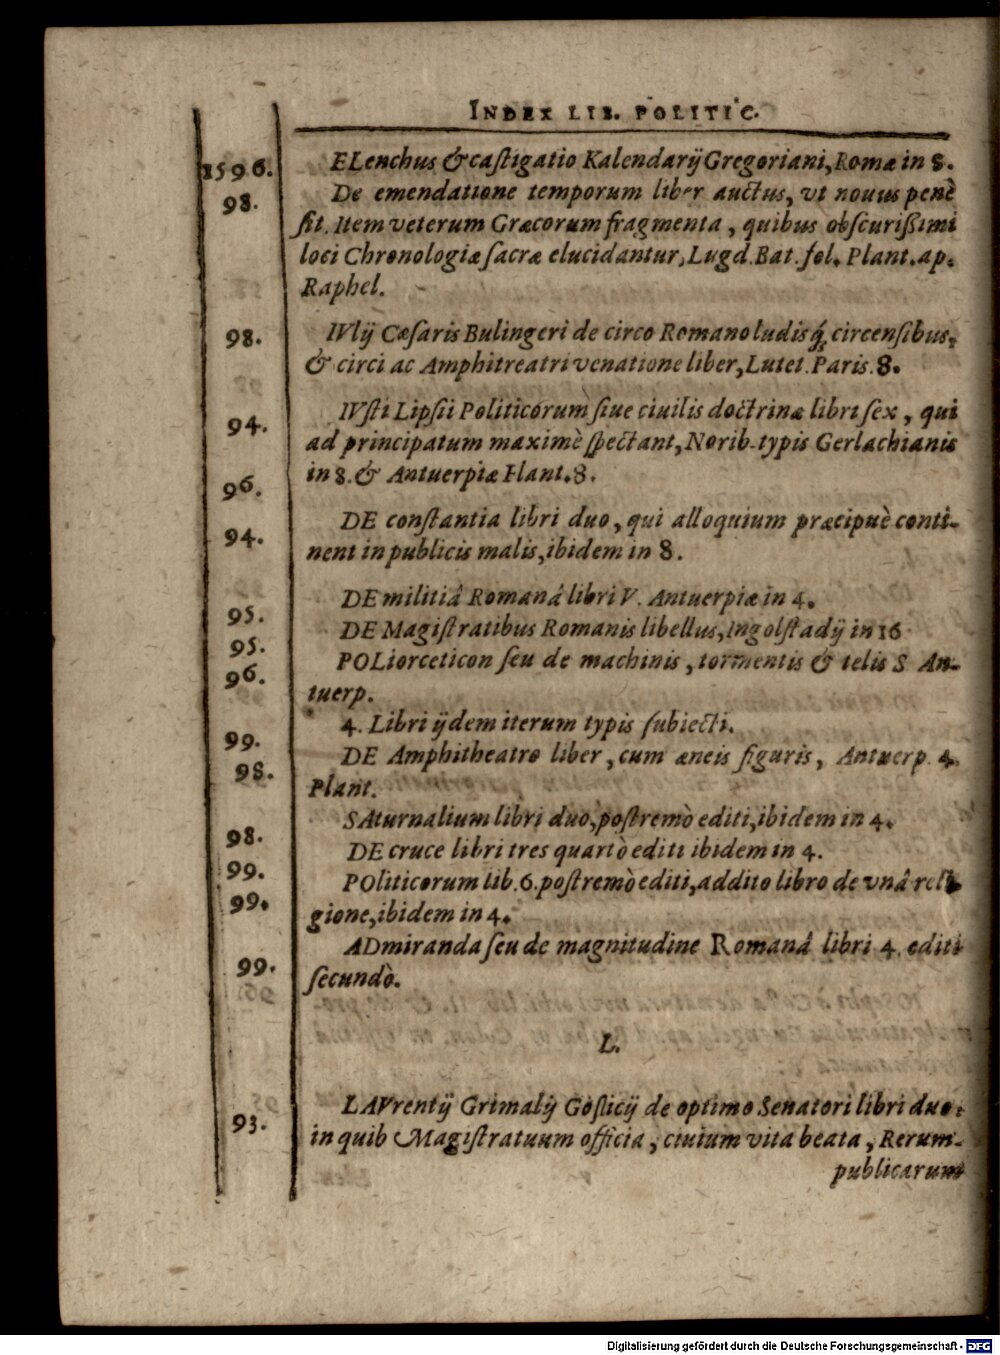 INDEX LIB. POLITIC.
1596. ELenchus & castigatio Kalendarij Gregoriani, Romæ in 8.
98. De emendatione temporum liber auctus, vt nouus penè
sit. Item veterum Græcorum fragmenta, quibus obscurißimi
loci Chronologiæ sacræ elucidantur, Lugd. Bat. fol. Plant. ap.
Raphel.
98. IVlij Cæsaris Bulingeri de circo Romano ludisq́; circensibus,
& circi ac Amphitreatri venatione liber, Lutet. Paris. 8.
94. IVsti Lipsii Politicorum siue ciuilis doctrinæ libri sex, qui
ad principatum maximè spectant, Norib. typis Gerlachianis
96. in 8. & Antuerpiæ Plant. 8.
94. DE constantia libri duo, qui alloquium præcipuè conti-
nent in publicis malis, ibidem in 8.
95. DE militiâ Romanâ libri V. Antuerpiæ in 4.
95. DE Magistratibus Romanis libellus, Ingolstadij in 16
96. POLiorceticon seu de machinis, tormentis & telis S An-
tuerp.
99. 4. Libri ijdem iterum typis subiecti.
98. DE Amphitheatro liber, cum æneis figuris, Antuerp. 4.
Plant.
98. SAturnalium libri duo, postremò editi, ibidem in 4.
99. DE cruce libri tres quartò editi ibidem in 4.
99. POliticorum lib. 6. postremò editi, addito libro de vnâ reli-
gione, ibidem in 4.
99. ADmiranda seu de magnitudine Romanâ libri 4. editi
secundò.
L.
93. LAVrentij Grimalij Goslicij de optimo Senatori libri duo:
in quib Magistratuum officia, ciuium vita beata, Rerum-
publicarum
Digitalisierung gefördert durch die Deutsche Forschungsgemeinschaft - DFG